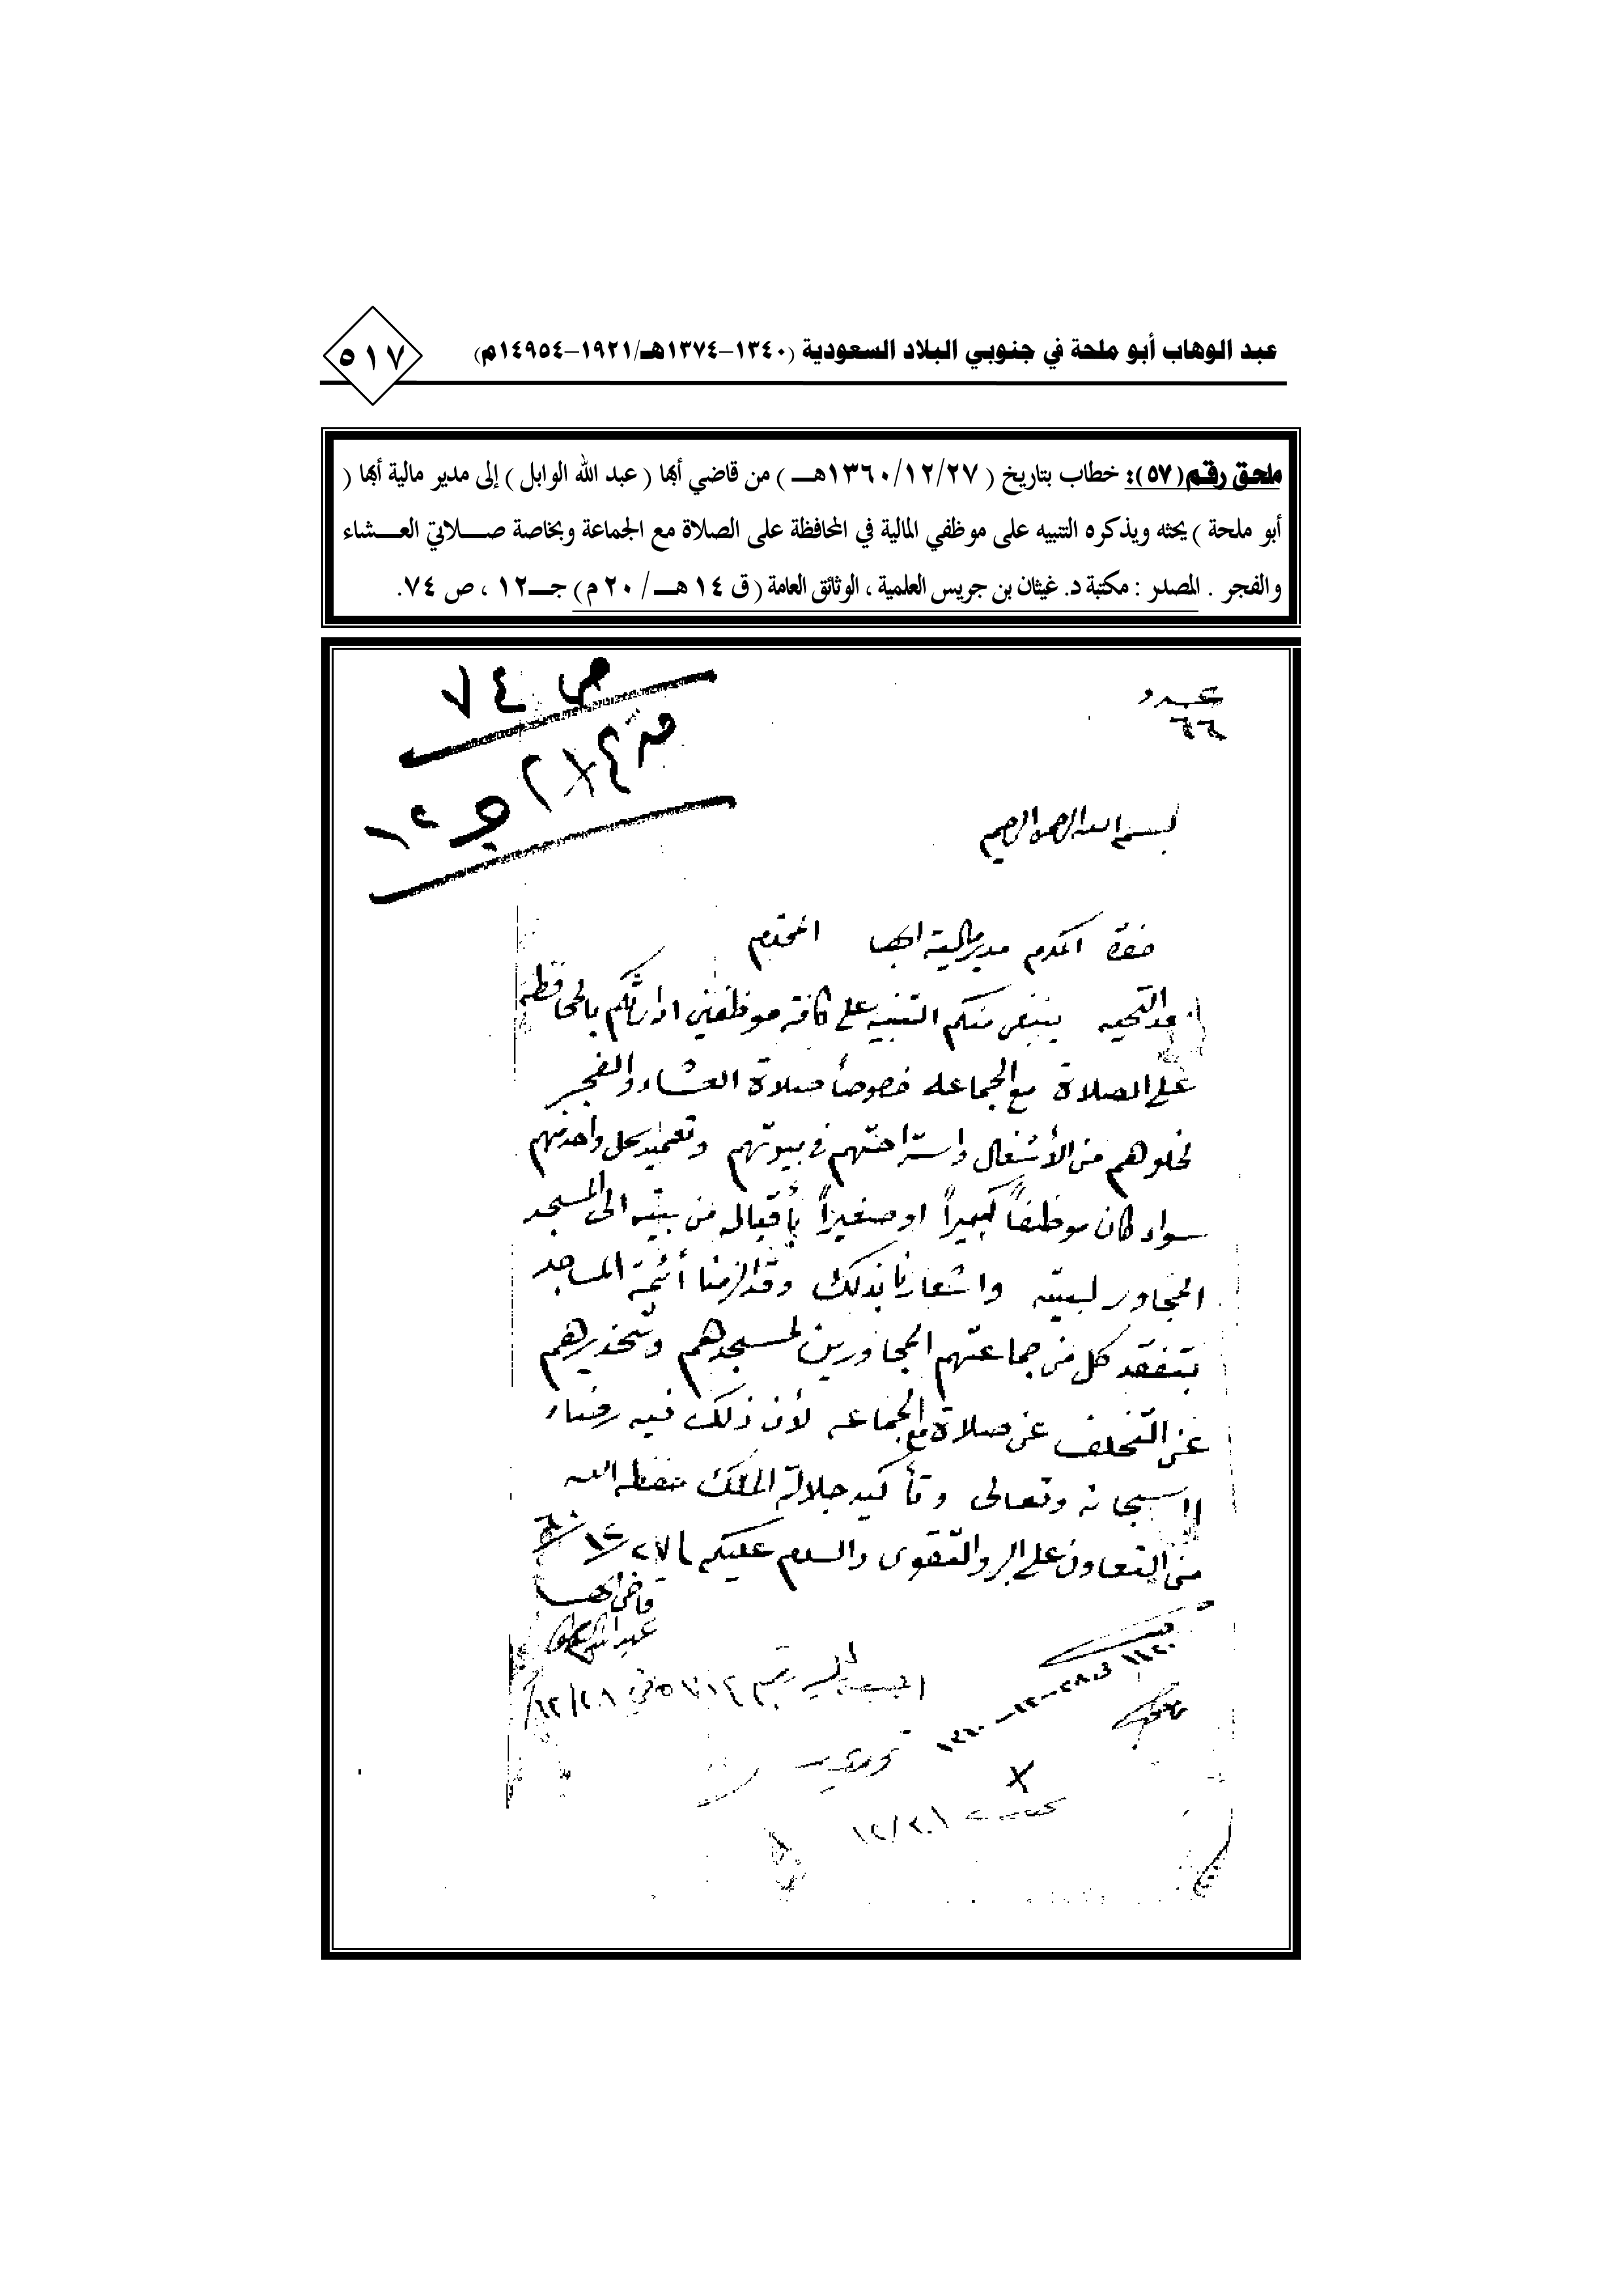 عبد الوهاب أبو ملحة في جنوبي البلاد السعودية (١٣٤٠-١٣٧٤هـ/١٩٢١-١٤٩٥٤م)
٥١٧
ملحق رقم(٥٧): خطاب بتاريخ ( ١٣٦٠/١٢/٢٧هـ ) من قاضي أبها ( عبد الله الوابل ) إلى مدير مالية أبها (
أبو ملحة ) يحثه ويذكره التنبيه على موظفي المالية في المحافظة على الصلاة مع الجماعة وبخاصة صلاتي العشاء
والفجر . المصدر : مكتبة د. غيثان بن جريس العلمية ، الوثائق العامة ( ق ١٤ هـ / ٢٠ م ) جـ١٢ ، ص ٧٤.
ص ٧٤
جـ ١٢
عدد
٦٦
بسم الله الرحمن الرحيم
حضرة المكرم مدير مالية ابها المحترم
بعد التحيه ينبغي منكم التنبيه على كافة موظفين ادارتكم بالمحافظه
على الصلاة مع الجماعه خصوصاً صلاة العشاء والفجر
لخلوهم من الأشغال واستراحتهم في بيوتهم وتعميد كل واحد منهم
سواء كان موظفاً كبيراً او صغيراً بأقباله من بيته الى المسجد
المجاور لبيته واشعارنا بذلك وقد الزمنا أئمة المساجد
بتفقد كل من جماعتهم المجاورين لمسجدهم وتحذيرهم
عن التخلف عن صلاة مع الجماعه لأن ذلك فيه رضاء
الله سبحانه وتعالى وتأكيد جلالة الملك حفظه الله
من التعاون على البر والتقوى والسلام عليكم ٢٧/١٢/٦٠
قاضي ابها
عبدالله الوابل
١١٢٠
٢٨-١٢-١٣٦٠